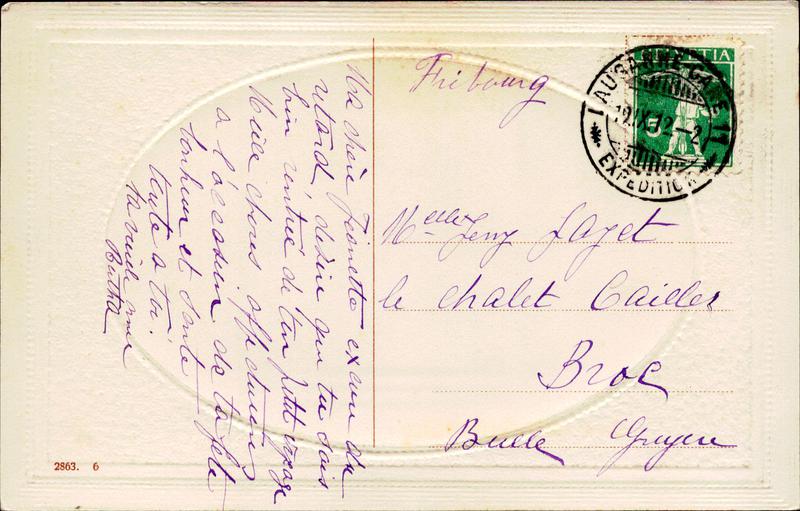 Ma chère Jeanette excuse du
retard, désire que tu sois
bien rentrée de ton petit voyage
Mille choses affectueuses
a l'occasion de ta fête
bonheur et santé
toute a toi.
ta vieille amie
Fribourg
HELVETIA
5
LAUSANNE GARE 11
EXPEDITION
Melle Jenny Fayet
le chalet Cailler
Broc
Bulle Gruyère
2863. 6